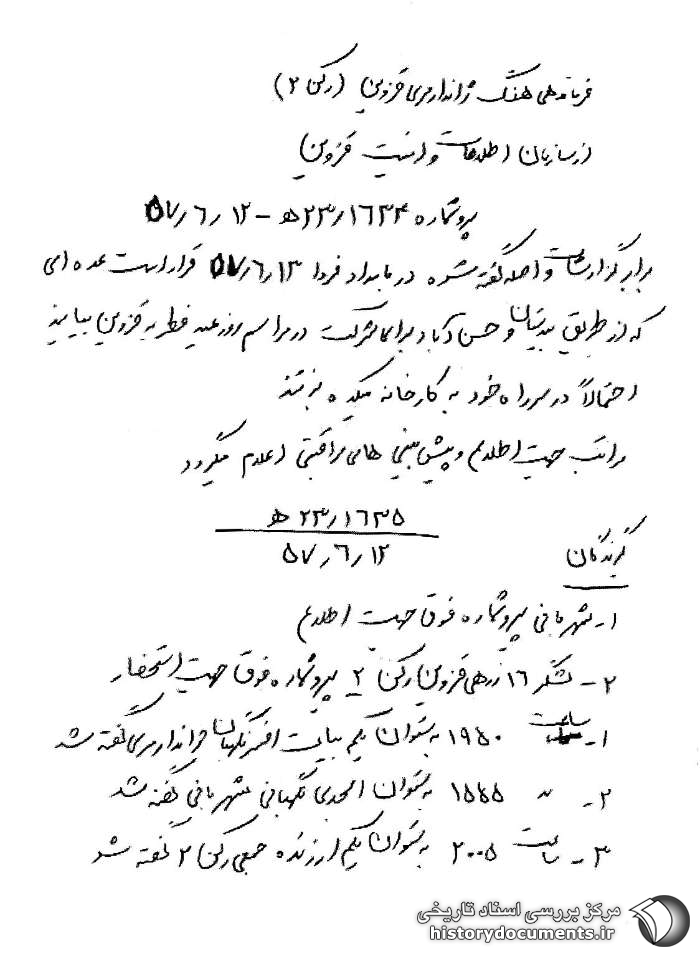 فرماندهی هنگ ژاندارمری قزوین (رکن ۲)
از سازمان اطلاعات و امنیت قزوین
پیرو شماره ۲۳/۱۶۳۴ﻫ - ۵۷/۶/۱۲
برابر گزارشات واصله گفته شده در بامداد فردا ۵۷/۶/۱۳ قرار است عده ای
که از طریق و حسن آباد برای شرکت در مراسم روز عید فطر به قزوین بیایند
احتمالاً در سر راه خود به کارخانه میکده بزنند
مراتب جهت اطلاع و پیش بینی های مراقبتی اعلام میگردد
۲۳/۱۶۳۵ﻫ
۵۷/۶/۱۲
گیرندگان
۱- شهربانی پیرو شماره فوق جهت اطلاع
۲- لشگر ۱۶ زرهی قزوین رکن ۲ پیرو شماره فوق جهت استحضار
۱- ساعت ۱۹۵۰ به ستوان یکم بیات افسر نگهبان ژاندارمری گفته شد
۲- " به ستوان امجدی نگهبانی شهربانی گفته شد
۳- ساعت ۲۰۰۵ به ستوان یکم ارزنده جمعی رکن ۲ گفته شد
مرکز بررسی اسناد تاریخی
historydocuments.ir